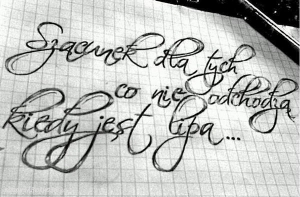 Szacunek dla tych
co nie odchodzą
kiedy jest lipa...